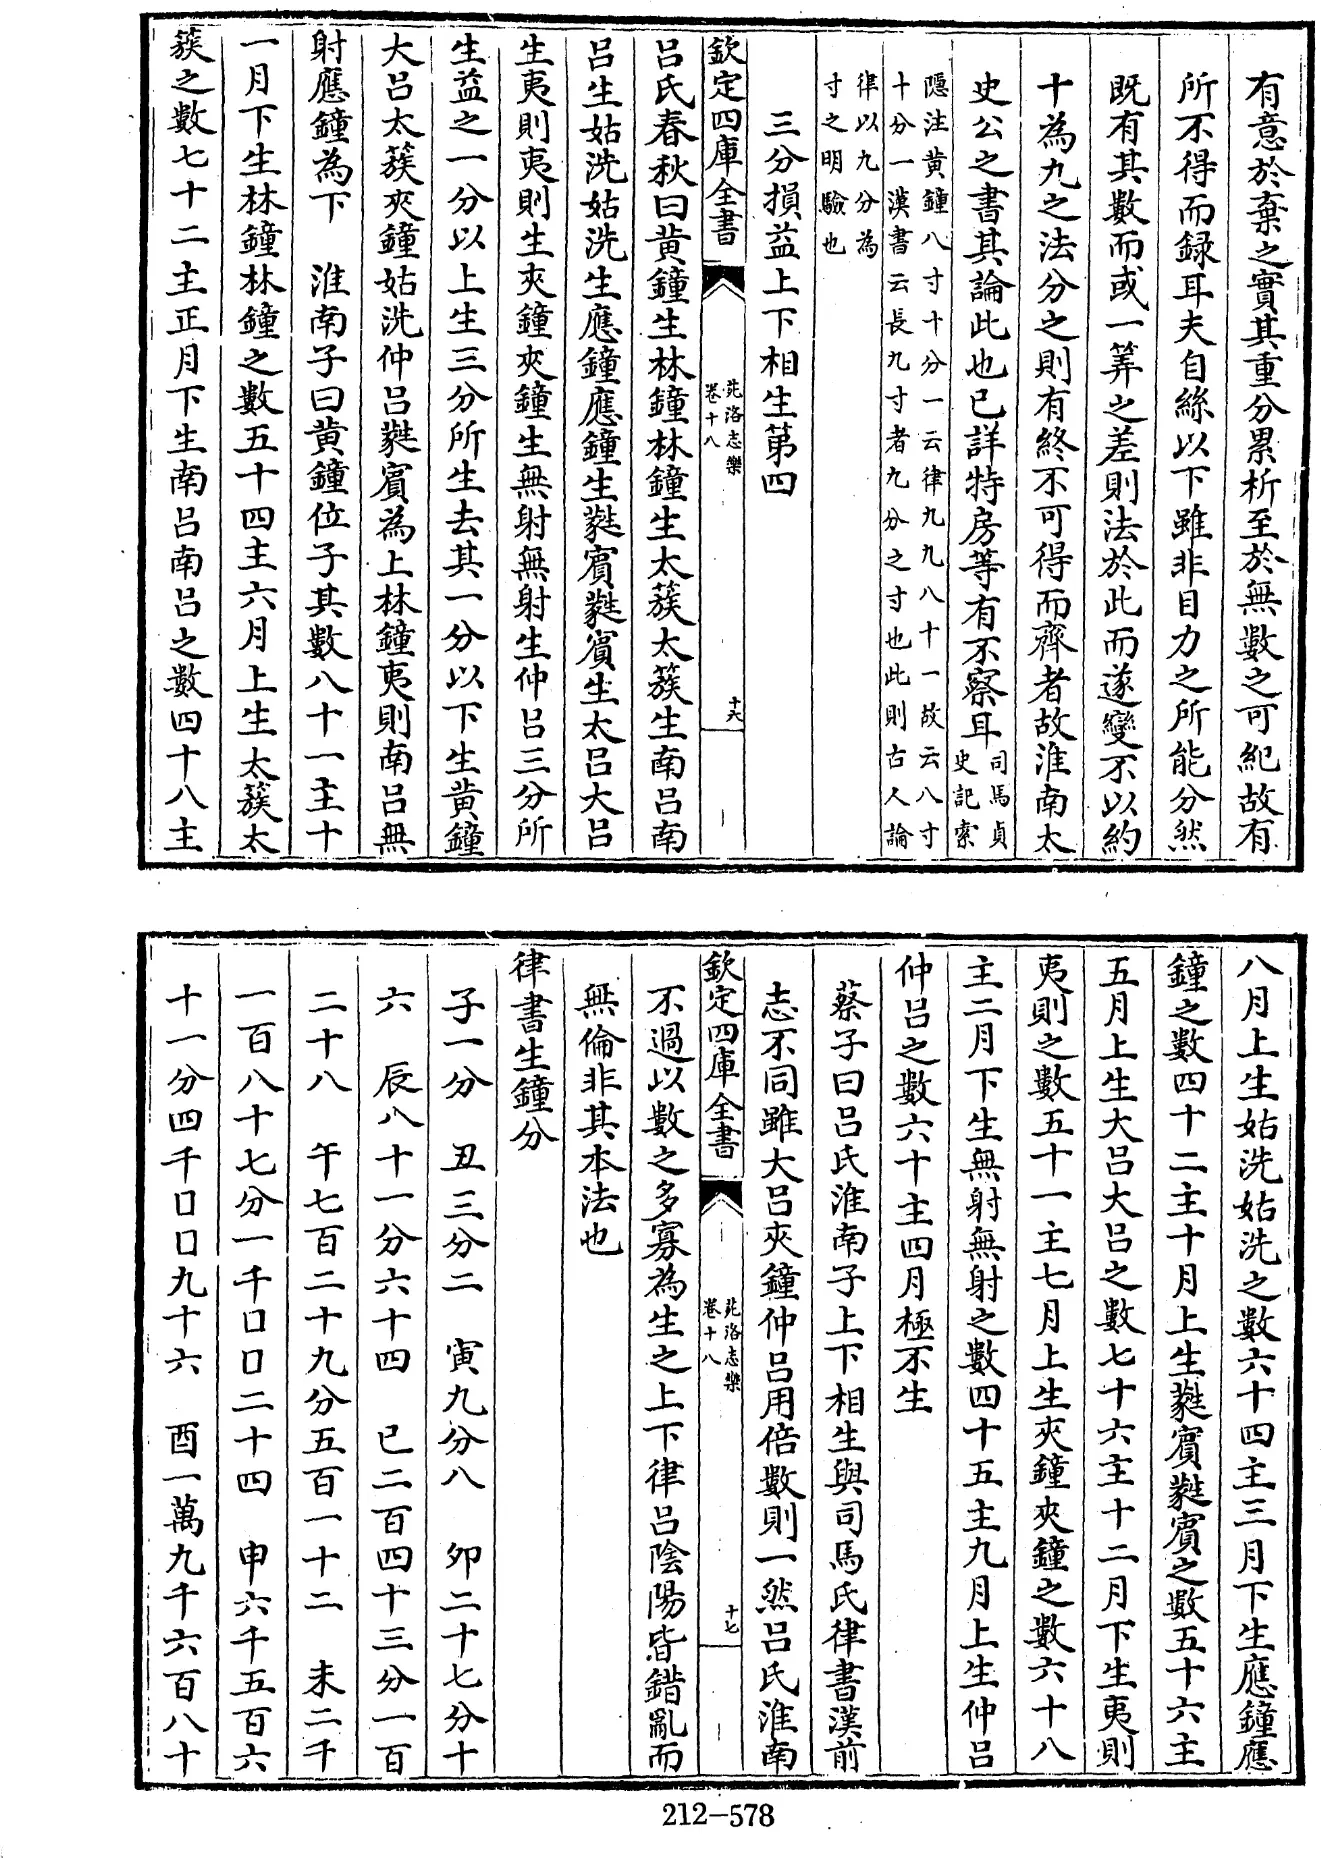 有意於棄之實其重分累析至於無數之可紀故有
所不得而録耳夫自絲以下雖非目力之所能分然
既有其數而或一筭之差則法於此而遂變不以約
十為九之法分之則有終不可得而齊者故淮南太
史公之書其論此也已詳特房等有不察耳司馬貞史記索
隱注黄鐘八寸十分一云律九九八十一故云八寸
十分一漢書云長九寸者九分之寸也此則古人論
律以九分為
寸之明驗也
三分損益上下相生第四
欽定四庫全書
苑洛志樂
卷十八
十六
吕氏春秋曰黄鐘生林鐘林鐘生太簇太簇生南吕南
吕生姑洗姑洗生應鐘應鐘生蕤賓蕤賓生太吕大吕
生夷則夷則生夾鐘夾鐘生無射無射生仲吕三分所
生益之一分以上生三分所生去其一分以下生黄鐘
大吕太簇夾鐘姑洗仲吕蕤賓為上林鐘夷則南吕無
射應鐘為下 淮南子曰黄鐘位子其數八十一主十
一月下生林鐘林鐘之數五十四主六月上生太簇太
簇之數七十二主正月下生南吕南吕之數四十八主
八月上生姑洗姑洗之數六十四主三月下生應鐘應
鐘之數四十二主十月上生蕤賓蕤賓之數五十六主
五月上生大吕大吕之數七十六主十二月下生夷則
夷則之數五十一主七月上生夾鐘夾鐘之數六十八
主二月下生無射無射之數四十五主九月上生仲吕
仲吕之數六十主四月極不生
蔡子曰吕氏淮南子上下相生與司馬氏律書漢前
志不同雖大吕夾鐘仲吕用倍數則一然吕氏淮南
欽定四庫全書
苑洛志樂
卷十八
十七
不過以數之多寡為生之上下律吕陰陽皆錯亂而
無倫非其本法也
律書生鐘分
子一分 丑三分二 寅九分八 夘二十七分十
六 辰八十一分六十四 巳二百四十三分一百
二十八 午七百二十九分五百一十二 未二千
一百八十七分一千口口二十四 申六千五百六
十一分四千口口九十六 酉一萬九千六百八十
212-578